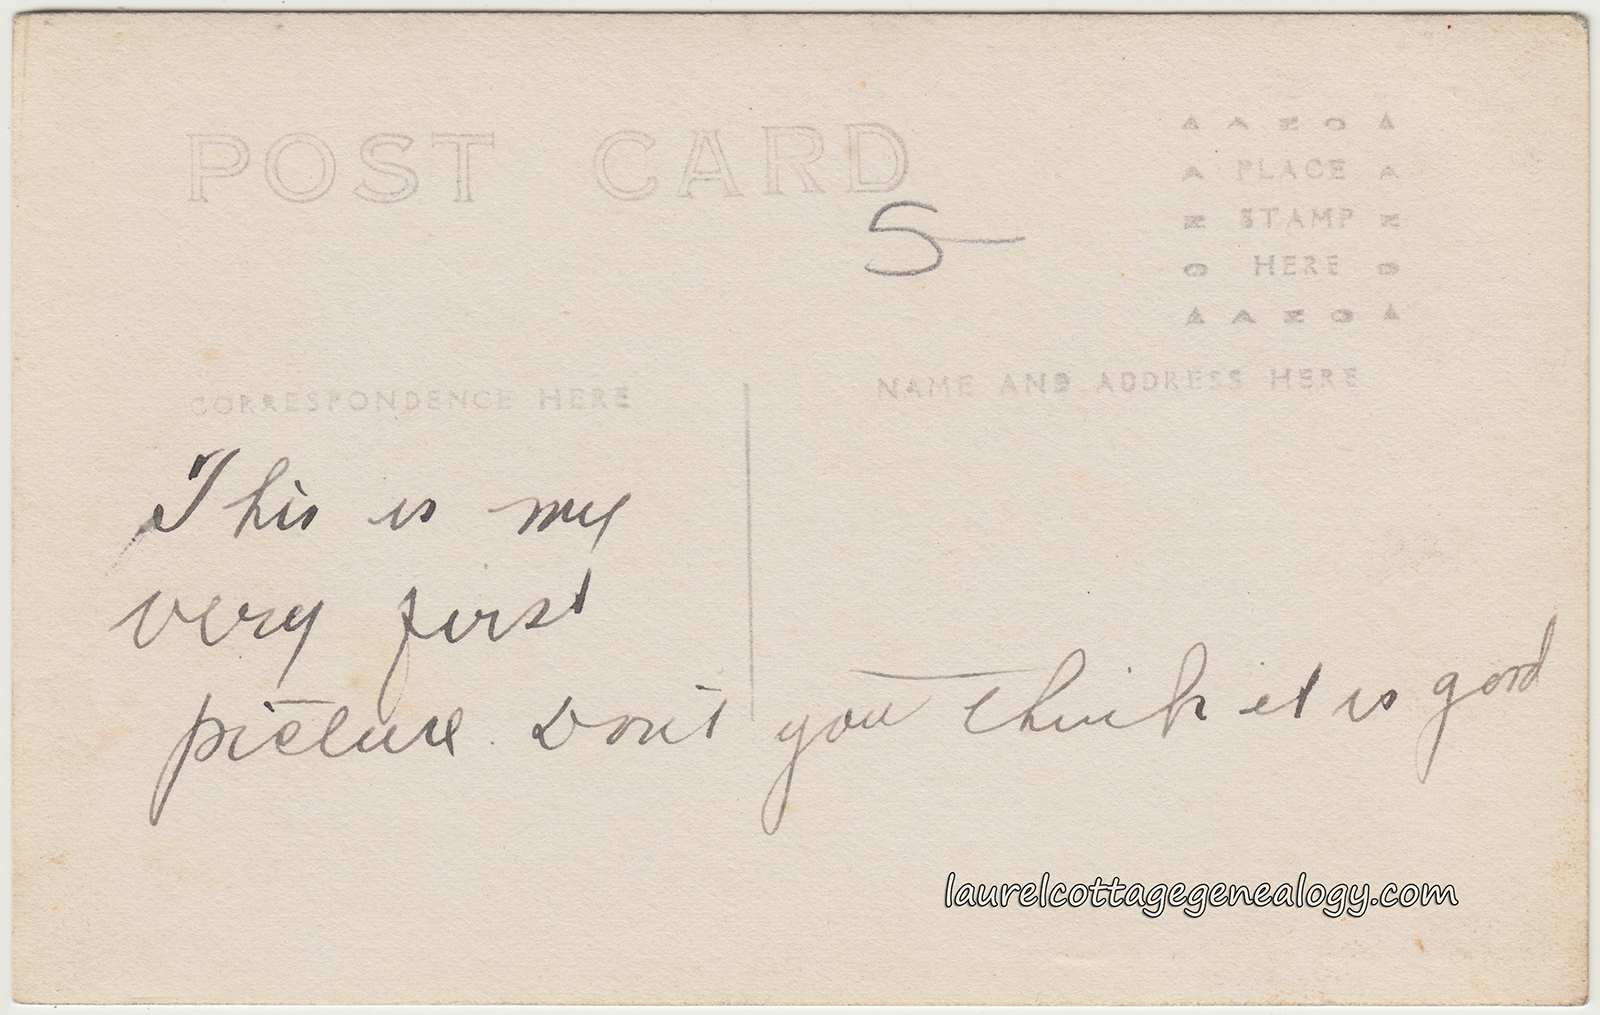 POST CARD
5
▲ A Z O ▲
A PLACE A
Z STAMP Z
O HERE O
▲ A Z O ▲
CORRESPONDENCE HERE
NAME AND ADDRESS HERE
This is my
very first
picture. Don't you think it is good
laurelcottagegenealogy.com